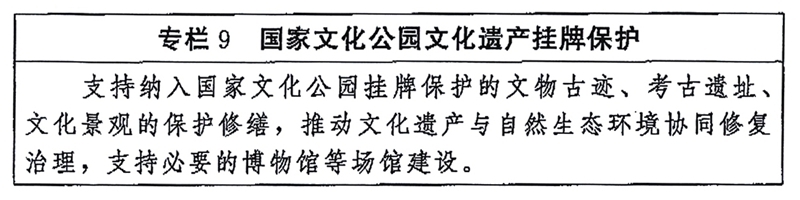 专栏9 国家文化公园文化遗产挂牌保护
支持纳入国家文化公园挂牌保护的文物古迹、考古遗址、
文化景观的保护修缮，推动文化遗产与自然生态环境协同修复
治理，支持必要的博物馆等场馆建设。